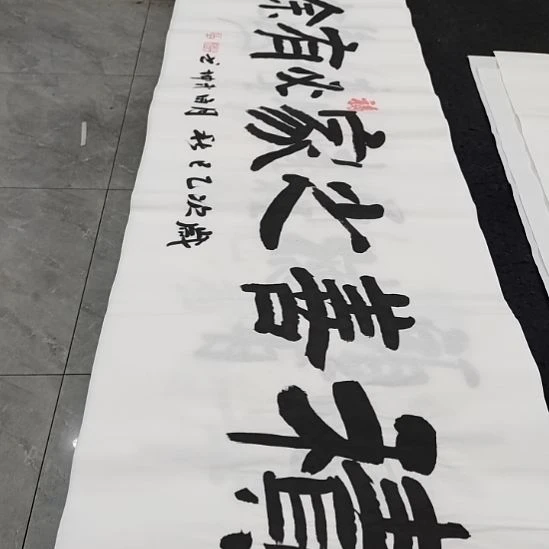 積善之家必有餘
歲次乙巳秋月